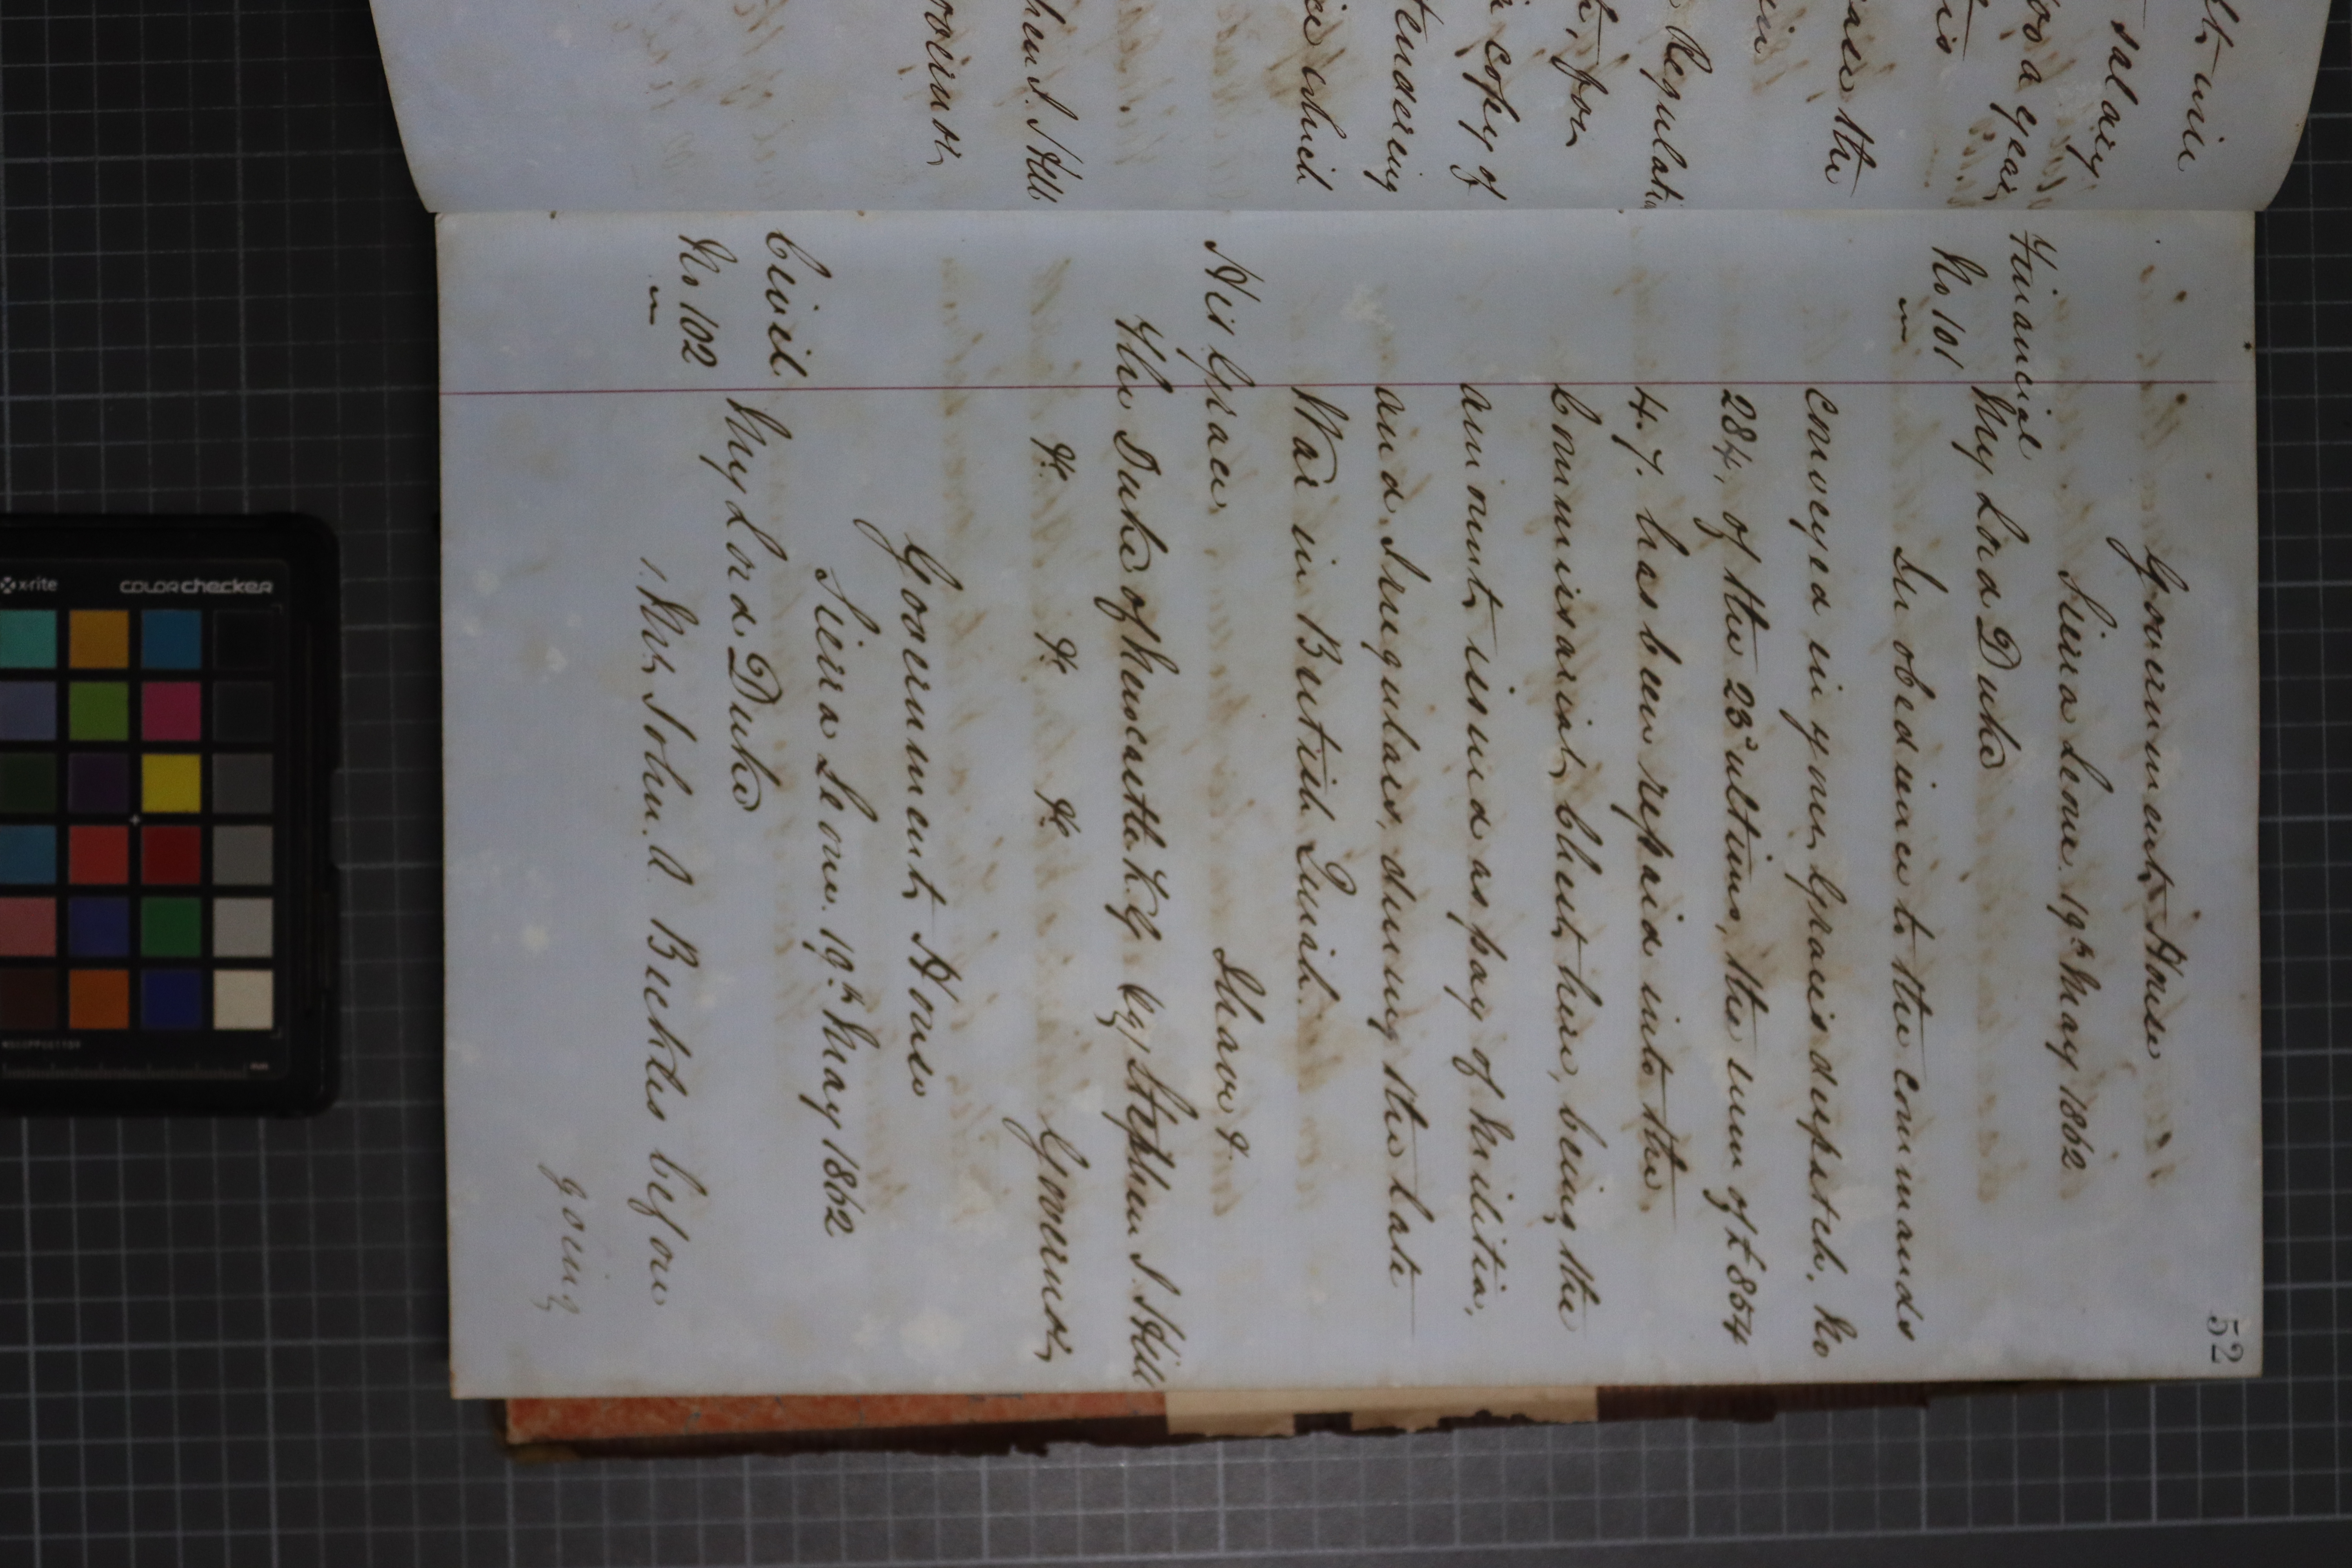 lt with
salary
00 a year
is
the
in
Regulati
for
copy of
tendering
which
hen J. Hill
Governor
52
Government House
Sierra Leone. 19th May 1862
Financial
No 101
My Lord Duke
In obedience to the commands
conveyed in your Graces despatch, No
284, of the 23d ultimo, the sum of £854
4. 7. has been repaid into the
Commissariat Chest here, being the
amount issued as pay of Militia,
and Irregulars, during the late
War in British Quiah.
I have &.
His Grace
The Duke of Newcastle K.G. Sg, Stephen J. Hill
&c &c &c Governor
Government House
Sierra Leone. 19th May 1862
Civil
No 102
My Lord Duke
1. Mr John. A. Bucktes before
going
x-rite colorchecker